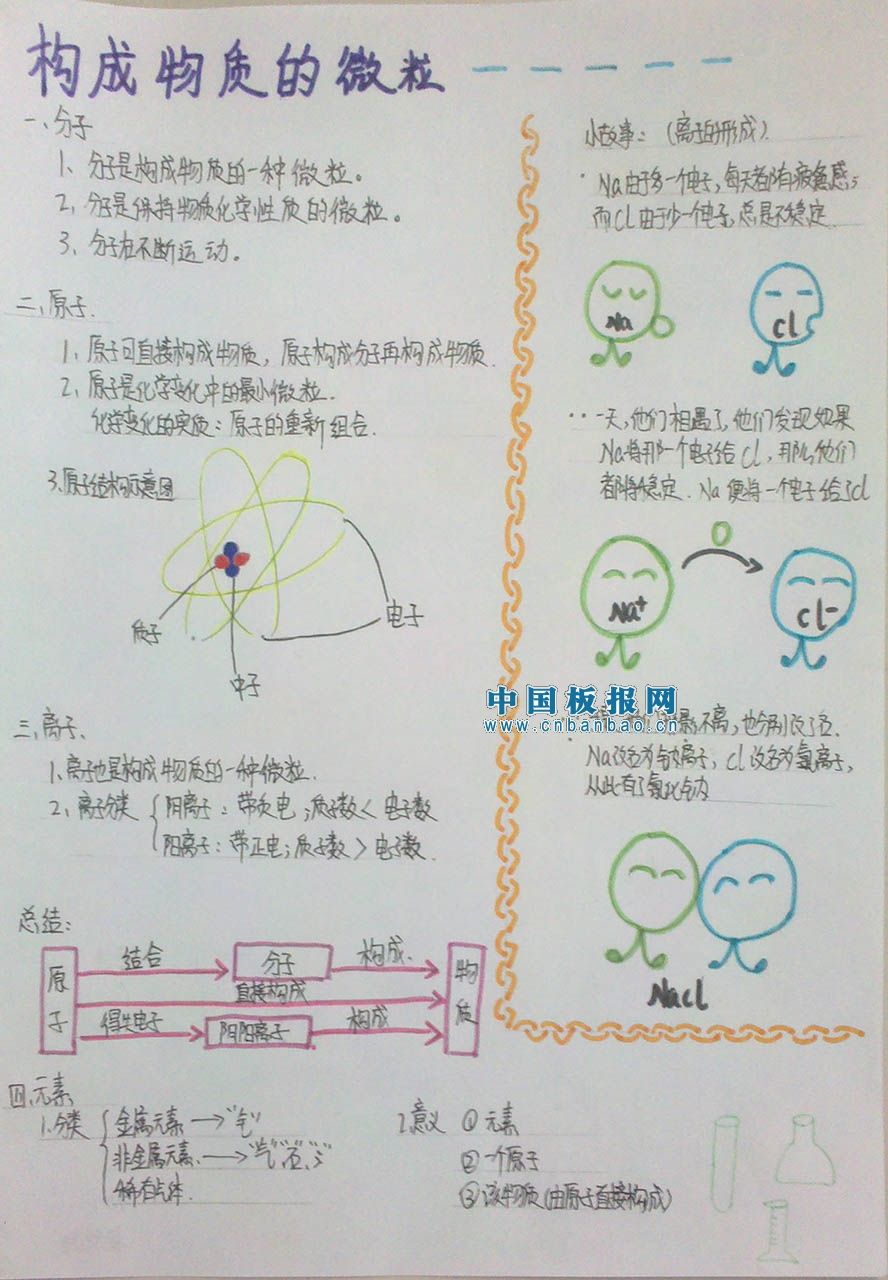 构成物质的微粒
一、分子
1、分子是构成物质的一种微粒。
2、分子是保持物质化学性质的微粒。
3、分子在不断运动。
二、原子.
1、原子可直接构成物质，原子构成分子再构成物质.
2、原子是化学变化中的最小微粒.
化学变化的实质：原子的重新组合.
3.原子结构示意图
质子
中子
电子
三、离子、
1.离子也是构成物质的一种微粒.
2、离子分类
阴离子：带负电；质子数< 电子数
阳离子：带正电；质子数> 电子数.
总结：
原子
结合
分子
构成.
直接构成
得失电子
阴阳离子
构成
物质
四、元素
1.分类
金属元素→"钅"
非金属元素→"气""石""氵"
稀有气体.
2.意义 ①元素
②一个原子
③该物质(由原子直接构成)
小故事：（离子的形成）.
· Na由于多一个电子，每天都有疲惫感；
而Cl由于少一个电子，总是不稳定.
Na
Cl
··一天，他们相遇了，他们发现如果
Na将那一个电子给Cl，那么他们
都将稳定. Na便将一个电子给了Cl
Na⁺
Cl⁻
中国板报网
www.cnbanbao.cn
影不离，也分别改了名.
Na改名为钠离子，Cl改名为氯离子，
从此有了氯化钠
Nacl